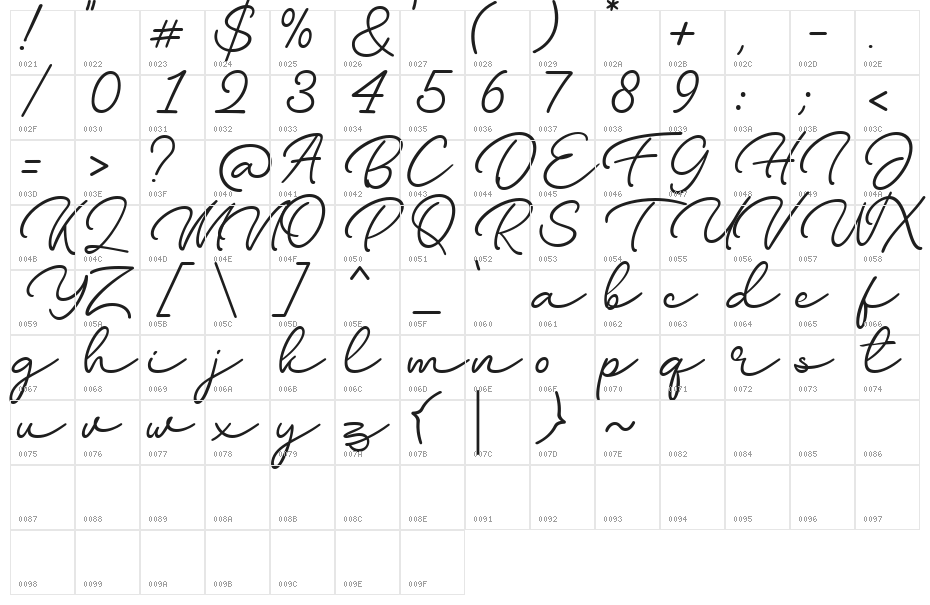 ! " # $ % & ' ( ) * + , - .
0021 0022 0023 0024 0025 0026 0027 0028 0029 002A 002B 002C 002D 002E
/ 0 1 2 3 4 5 6 7 8 9 : ; <
002F 0030 0031 0032 0033 0034 0035 0036 0037 0038 0039 003A 003B 003C
= > ? @ A B C D E F G H I J
003D 003E 003F 0040 0041 0042 0043 0044 0045 0046 0047 0048 0049 004A
K L M N O P Q R S T U V W X
004B 004C 004D 004E 004F 0050 0051 0052 0053 0054 0055 0056 0057 0058
Y Z [ \ ] ^ _ ` a b c d e f
0059 005A 005B 005C 005D 005E 005F 0060 0061 0062 0063 0064 0065 0066
g h i j k l m n o p q r s t
0067 0068 0069 006A 006B 006C 006D 006E 006F 0070 0071 0072 0073 0074
u v w x y z { | } ~
0075 0076 0077 0078 0079 007A 007B 007C 007D 007E 0082 0084 0085 0086
0087 0088 0089 008A 008B 008C 008E 0091 0092 0093 0094 0095 0096 0097
0098 0099 009A 009B 009C 009E 009F